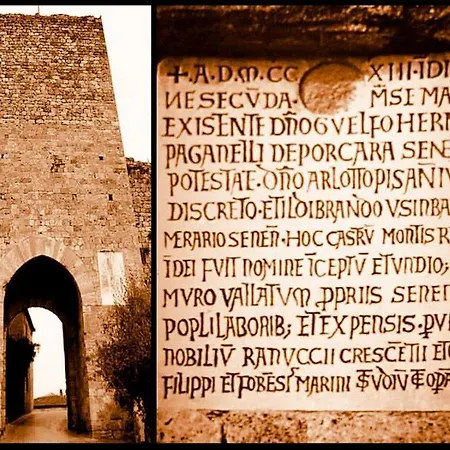 + A D M CC XIII IDI
NE SECVDA MSE MA
EXISTENTE DÑO GVELFO HERM
PAGANELLI DE PORCARA SENE
POTESTAE DÑO ARLOTTO PISANI
DISCRETO ET ILDIBRANDO VSINBA
MERARIO SENEÑ HOC CASTRV MONTIS R
ĪDEI FVIT NOMINE ĪCEPTV ET VNDIQ;
MVRO VALLATVM PPRIIS SENEN
POPLI LABORIB; ET EXPENSIS
NOBILIV RANVCCII CRESCETII ET
FILIPPI ET FORESI MARINI